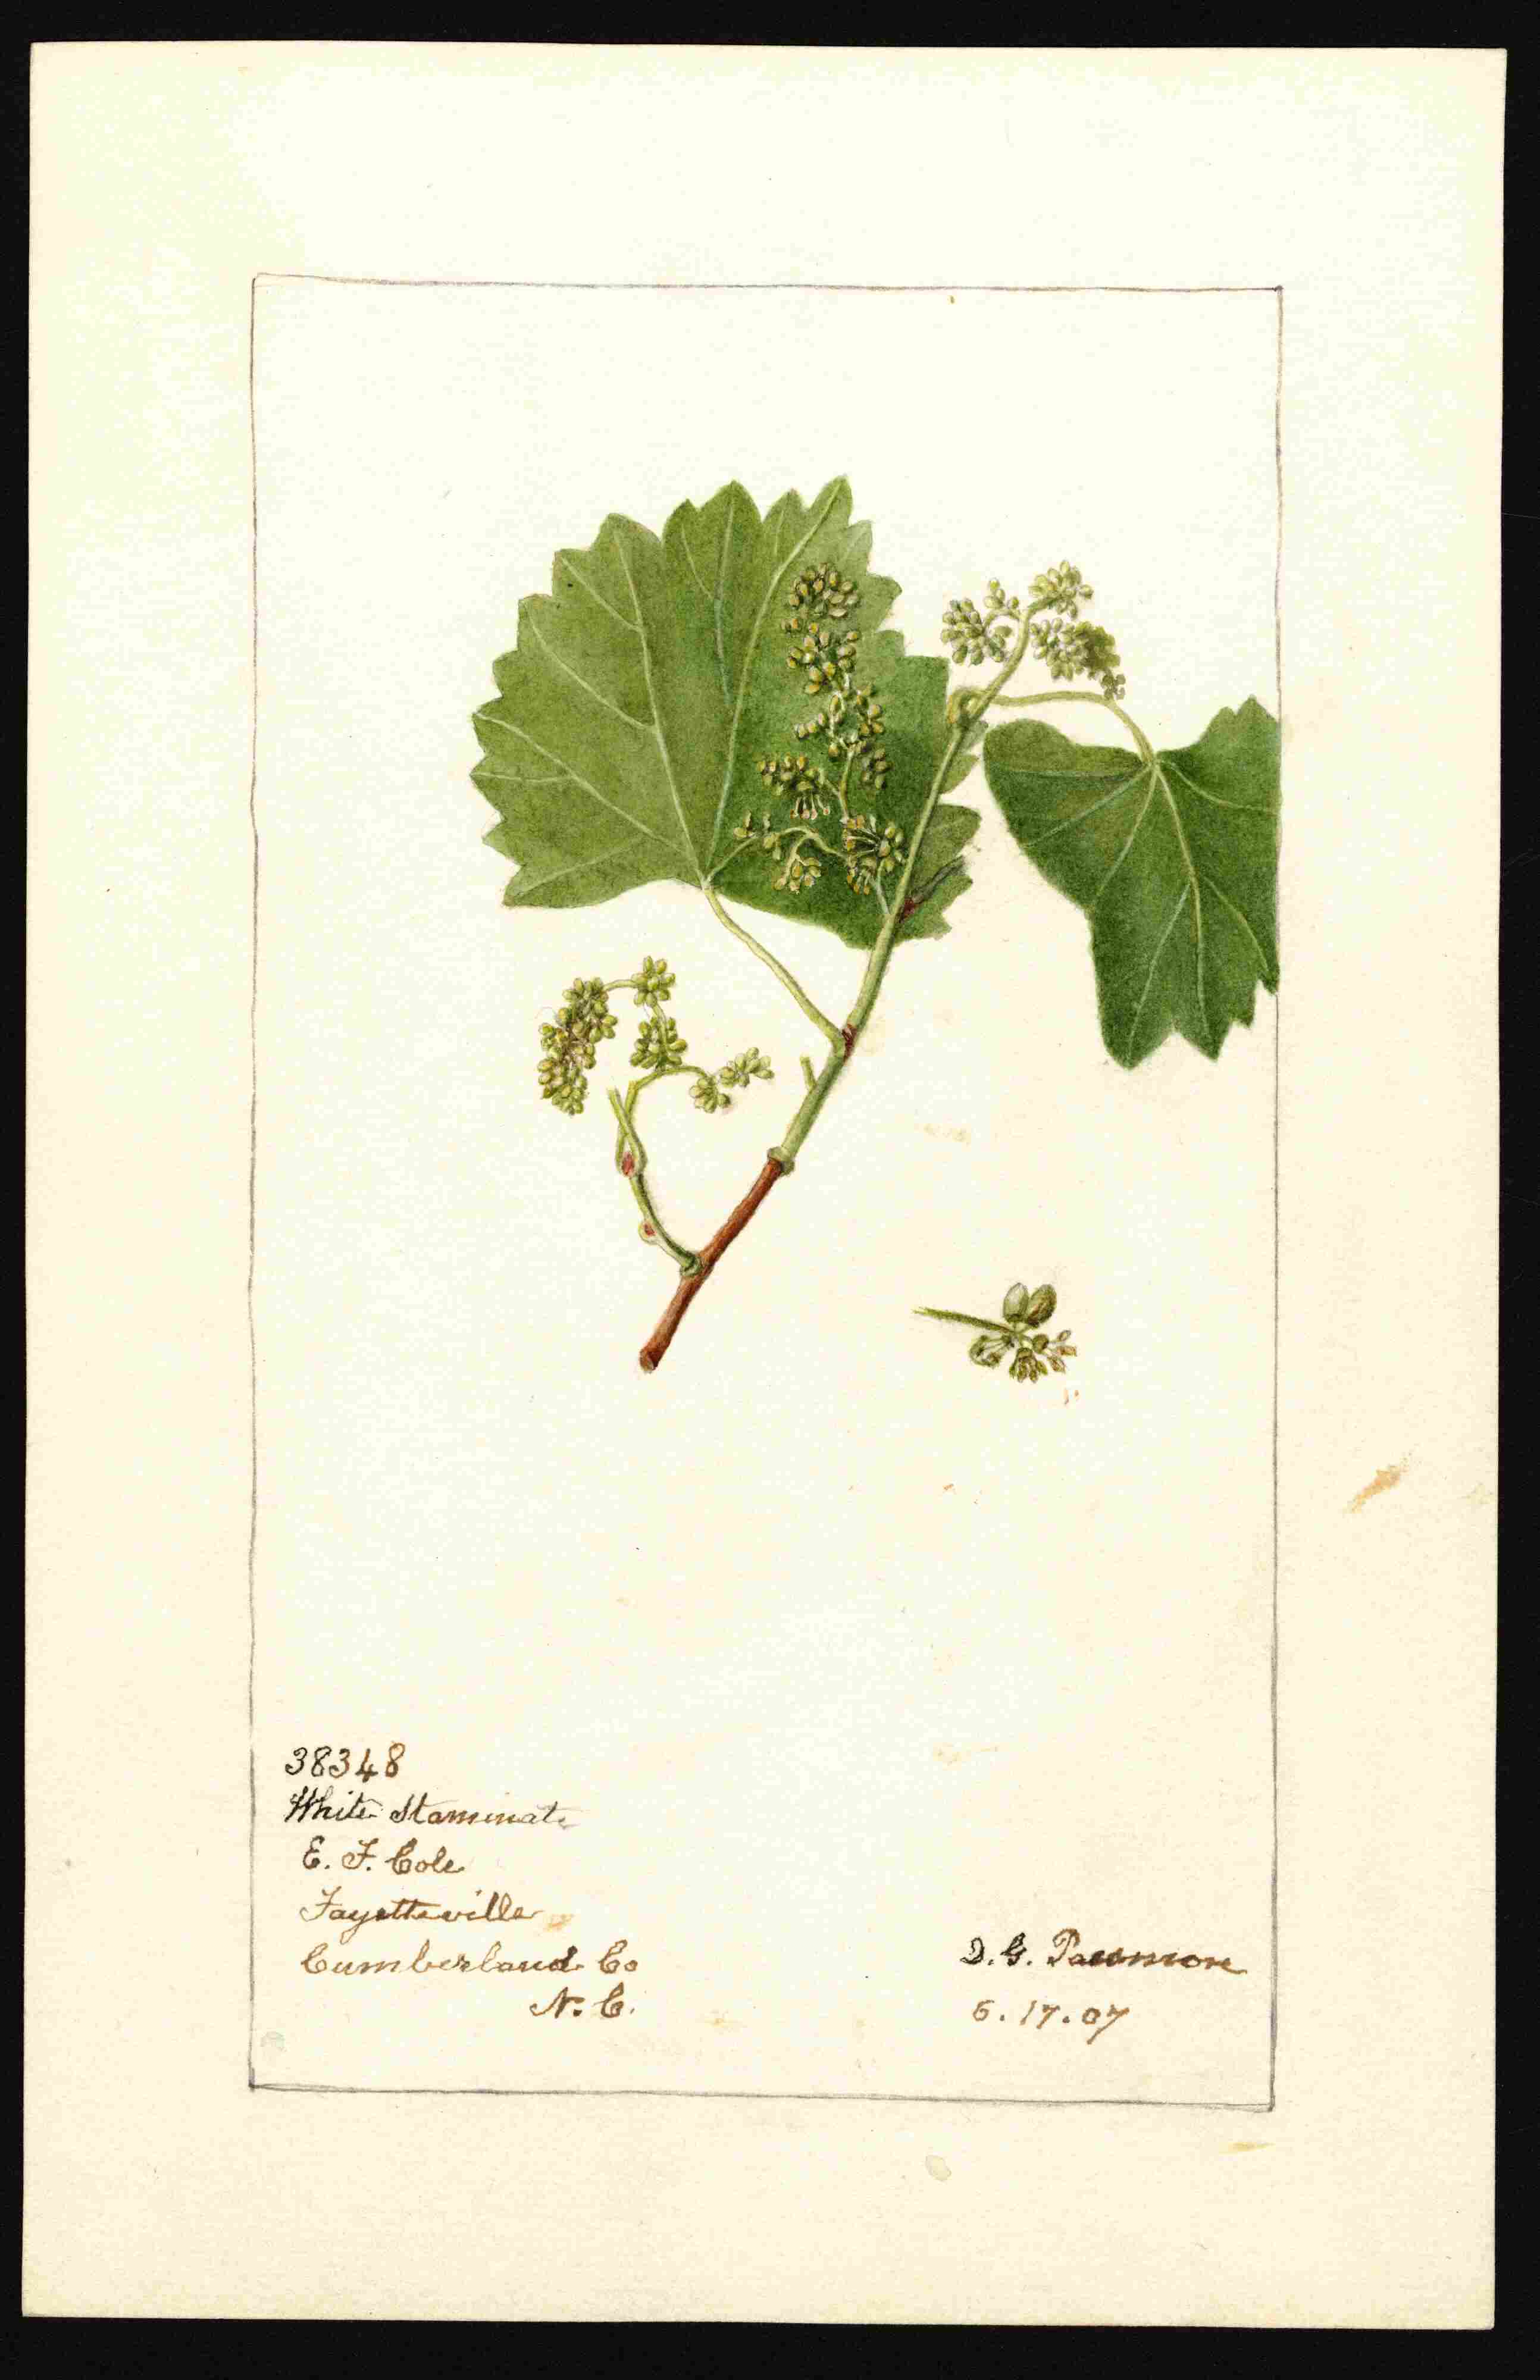 38348
White Staminate
E. F. Cole
Fayetteville
Cumberland Co
N. C.
D. G. Passmore
6. 17. 07